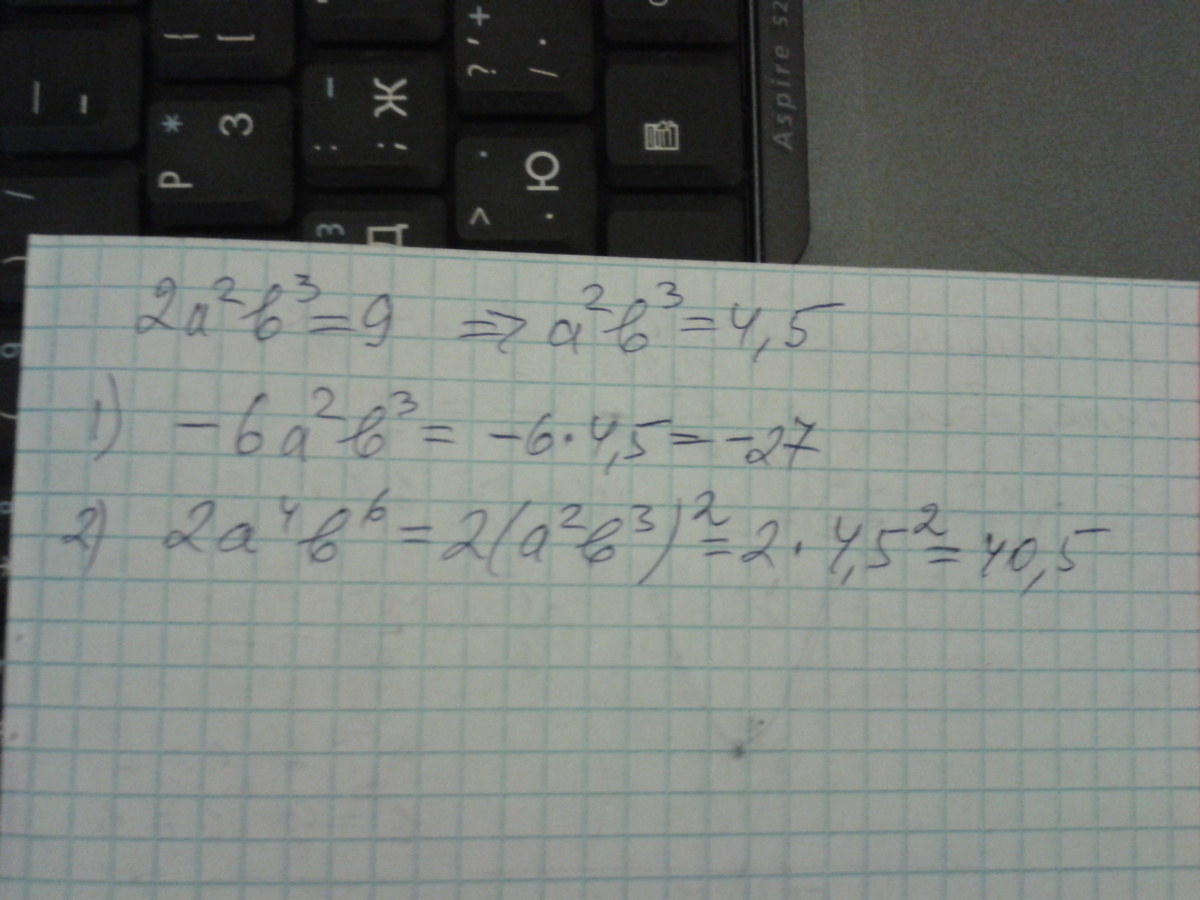 Aspire 52
| [
— -
Р * З
: - ; Ж
? ' + / .
> . Ю
З Д
2a²b³=9 => a²b³=4,5
1) -6a²b³= -6·4,5=-27
2) 2a⁴b⁶=2(a²b³)²=2·4,5²=40,5